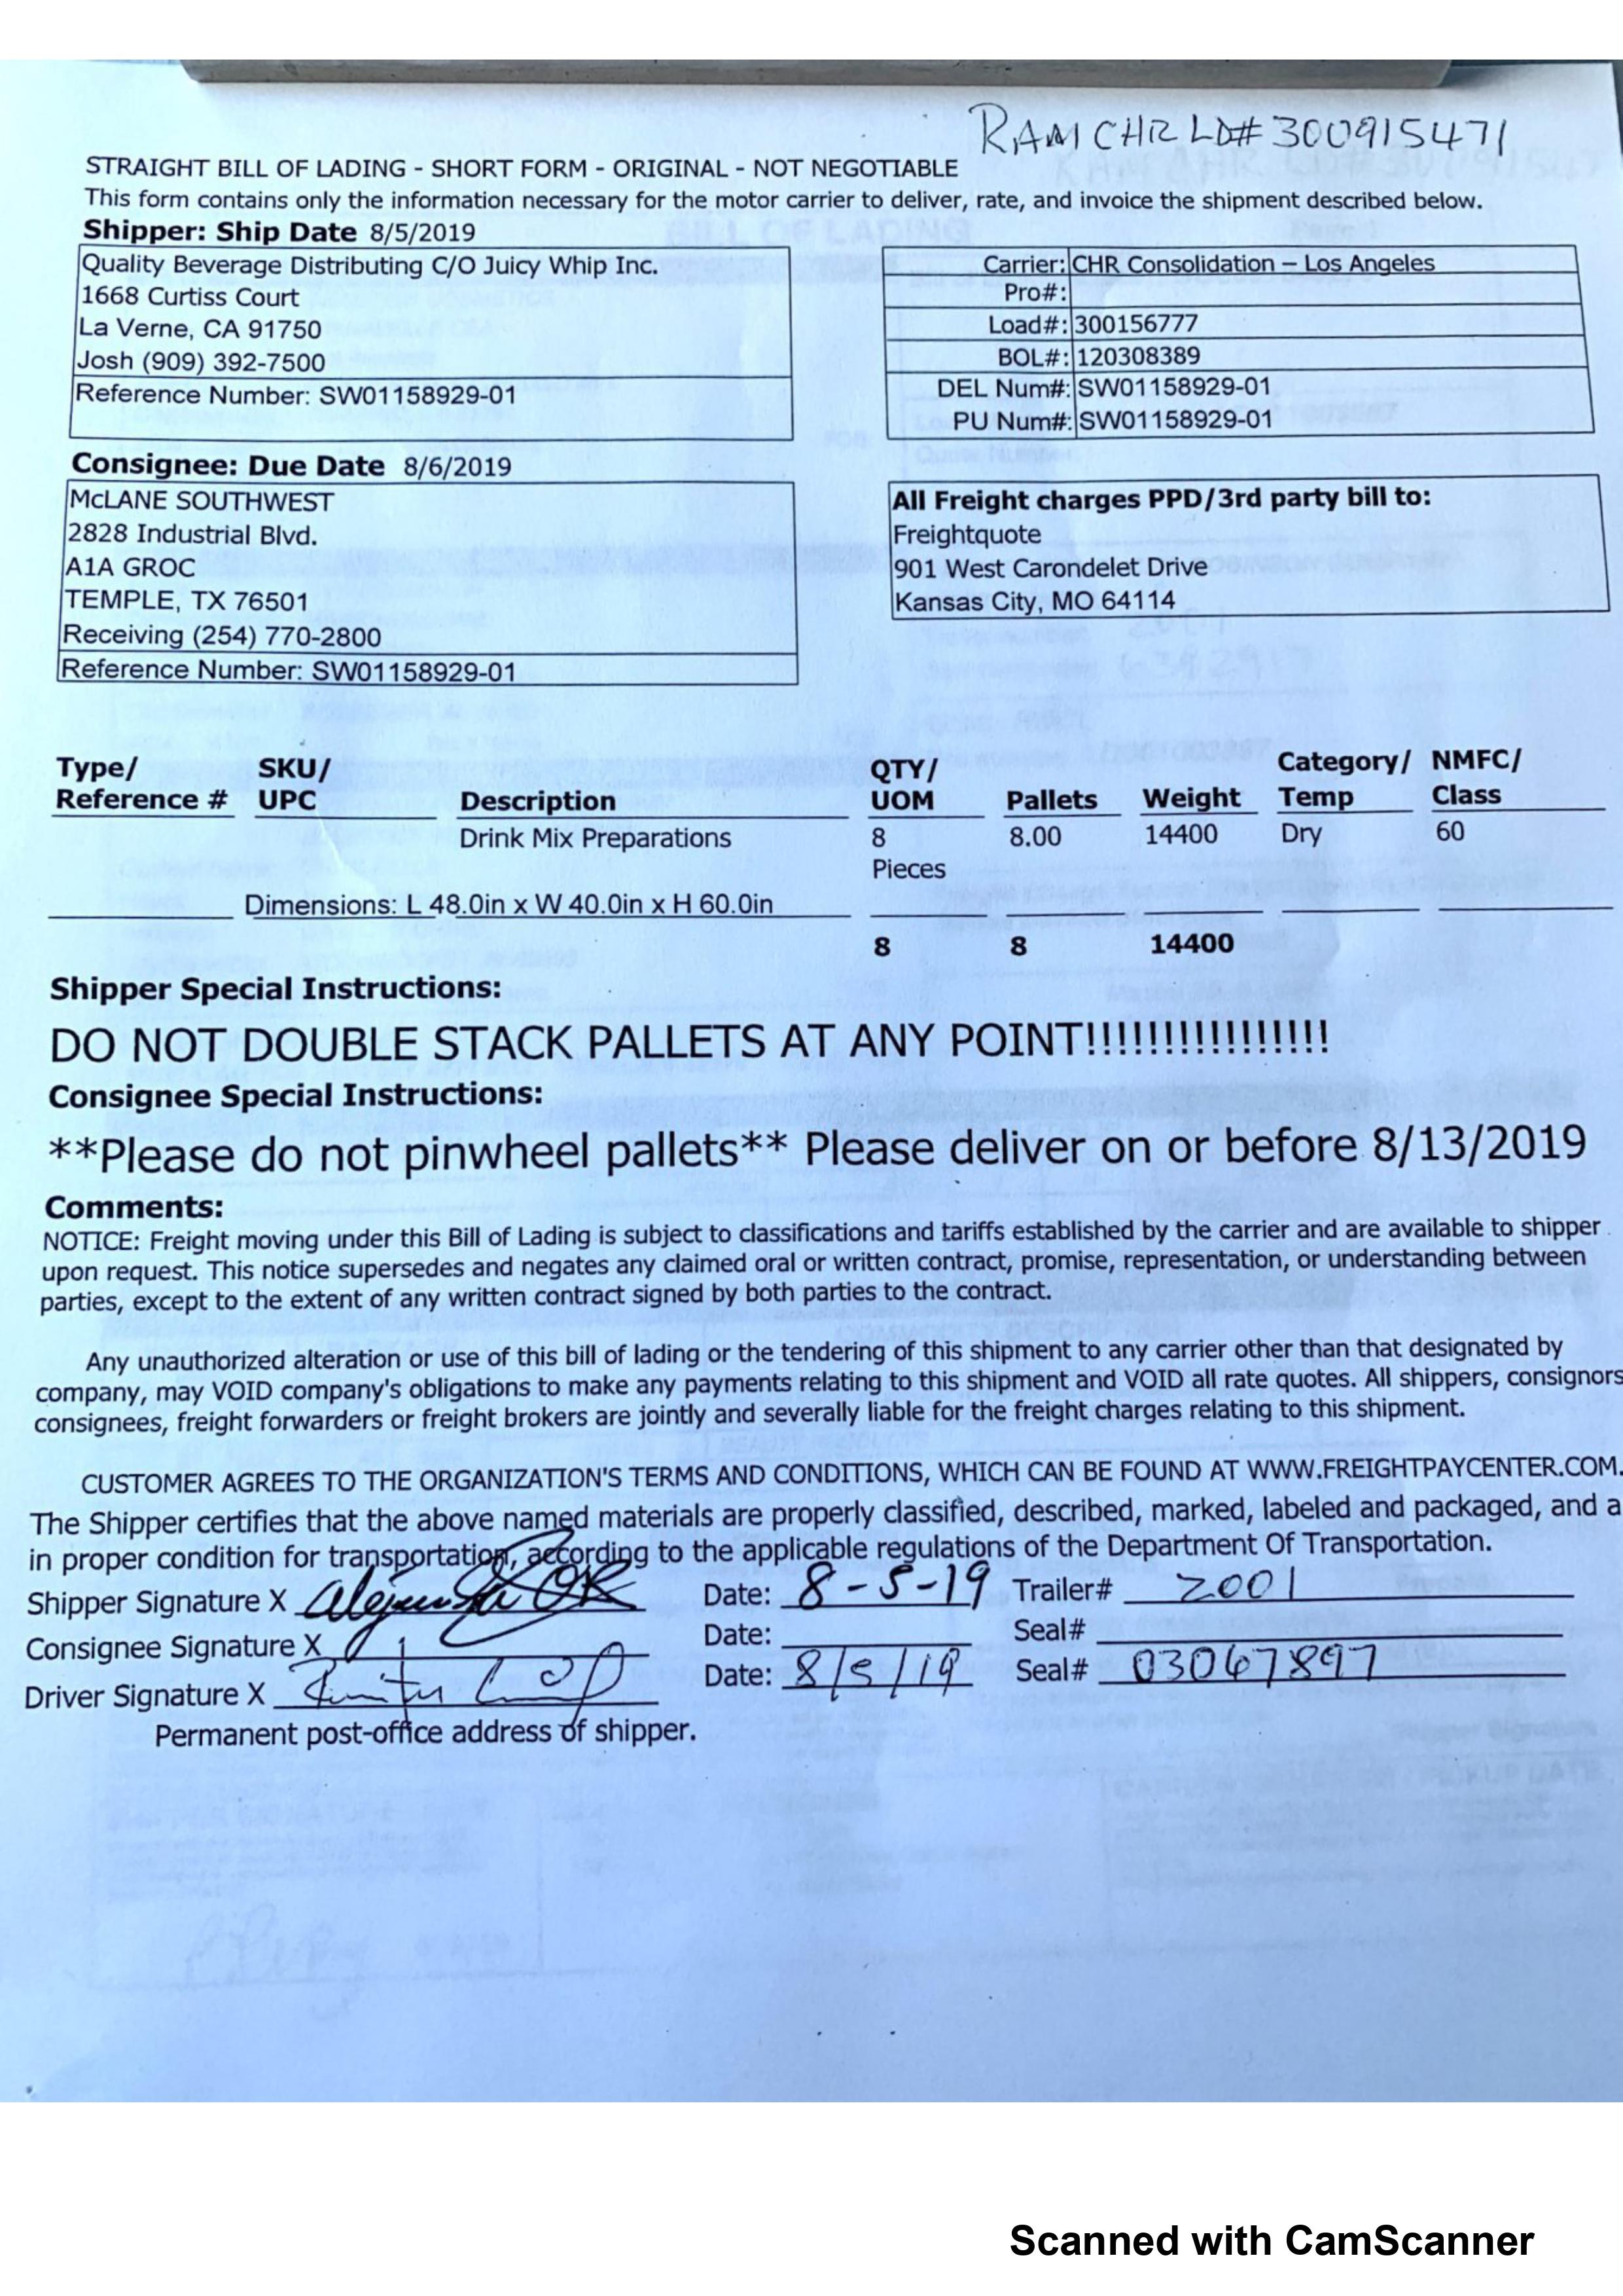 RAM CHR LD# 300915471
STRAIGHT BILL OF LADING - SHORT FORM - ORIGINAL - NOT NEGOTIABLE
This form contains only the information necessary for the motor carrier to deliver, rate, and invoice the shipment described below.
Shipper: Ship Date 8/5/2019
Quality Beverage Distributing C/O Juicy Whip Inc.
1668 Curtiss Court
La Verne, CA 91750
Josh (909) 392-7500
Reference Number: SW01158929-01
Carrier: CHR Consolidation – Los Angeles
Pro#:
Load#: 300156777
BOL#: 120308389
DEL Num#: SW01158929-01
PU Num#: SW01158929-01
Consignee: Due Date 8/6/2019
McLANE SOUTHWEST
2828 Industrial Blvd.
A1A GROC
TEMPLE, TX 76501
Receiving (254) 770-2800
Reference Number: SW01158929-01
All Freight charges PPD/3rd party bill to:
Freightquote
901 West Carondelet Drive
Kansas City, MO 64114
Type/ SKU/ QTY/ Category/ NMFC/
Reference # UPC Description UOM Pallets Weight Temp Class
Drink Mix Preparations 8 8.00 14400 Dry 60
Pieces
Dimensions: L 48.0in x W 40.0in x H 60.0in
8 8 14400
Shipper Special Instructions:
DO NOT DOUBLE STACK PALLETS AT ANY POINT!!!!!!!!!!!!!!!!
Consignee Special Instructions:
**Please do not pinwheel pallets** Please deliver on or before 8/13/2019
Comments:
NOTICE: Freight moving under this Bill of Lading is subject to classifications and tariffs established by the carrier and are available to shipper
upon request. This notice supersedes and negates any claimed oral or written contract, promise, representation, or understanding between
parties, except to the extent of any written contract signed by both parties to the contract.
Any unauthorized alteration or use of this bill of lading or the tendering of this shipment to any carrier other than that designated by
company, may VOID company's obligations to make any payments relating to this shipment and VOID all rate quotes. All shippers, consignors
consignees, freight forwarders or freight brokers are jointly and severally liable for the freight charges relating to this shipment.
CUSTOMER AGREES TO THE ORGANIZATION'S TERMS AND CONDITIONS, WHICH CAN BE FOUND AT WWW.FREIGHTPAYCENTER.COM.
The Shipper certifies that the above named materials are properly classified, described, marked, labeled and packaged, and a
in proper condition for transportation, according to the applicable regulations of the Department Of Transportation.
Shipper Signature X Date: 8-5-19 Trailer# 2001
Consignee Signature X Date: Seal#
Driver Signature X Date: 8/5/19 Seal# 03067897
Permanent post-office address of shipper.
Scanned with CamScanner